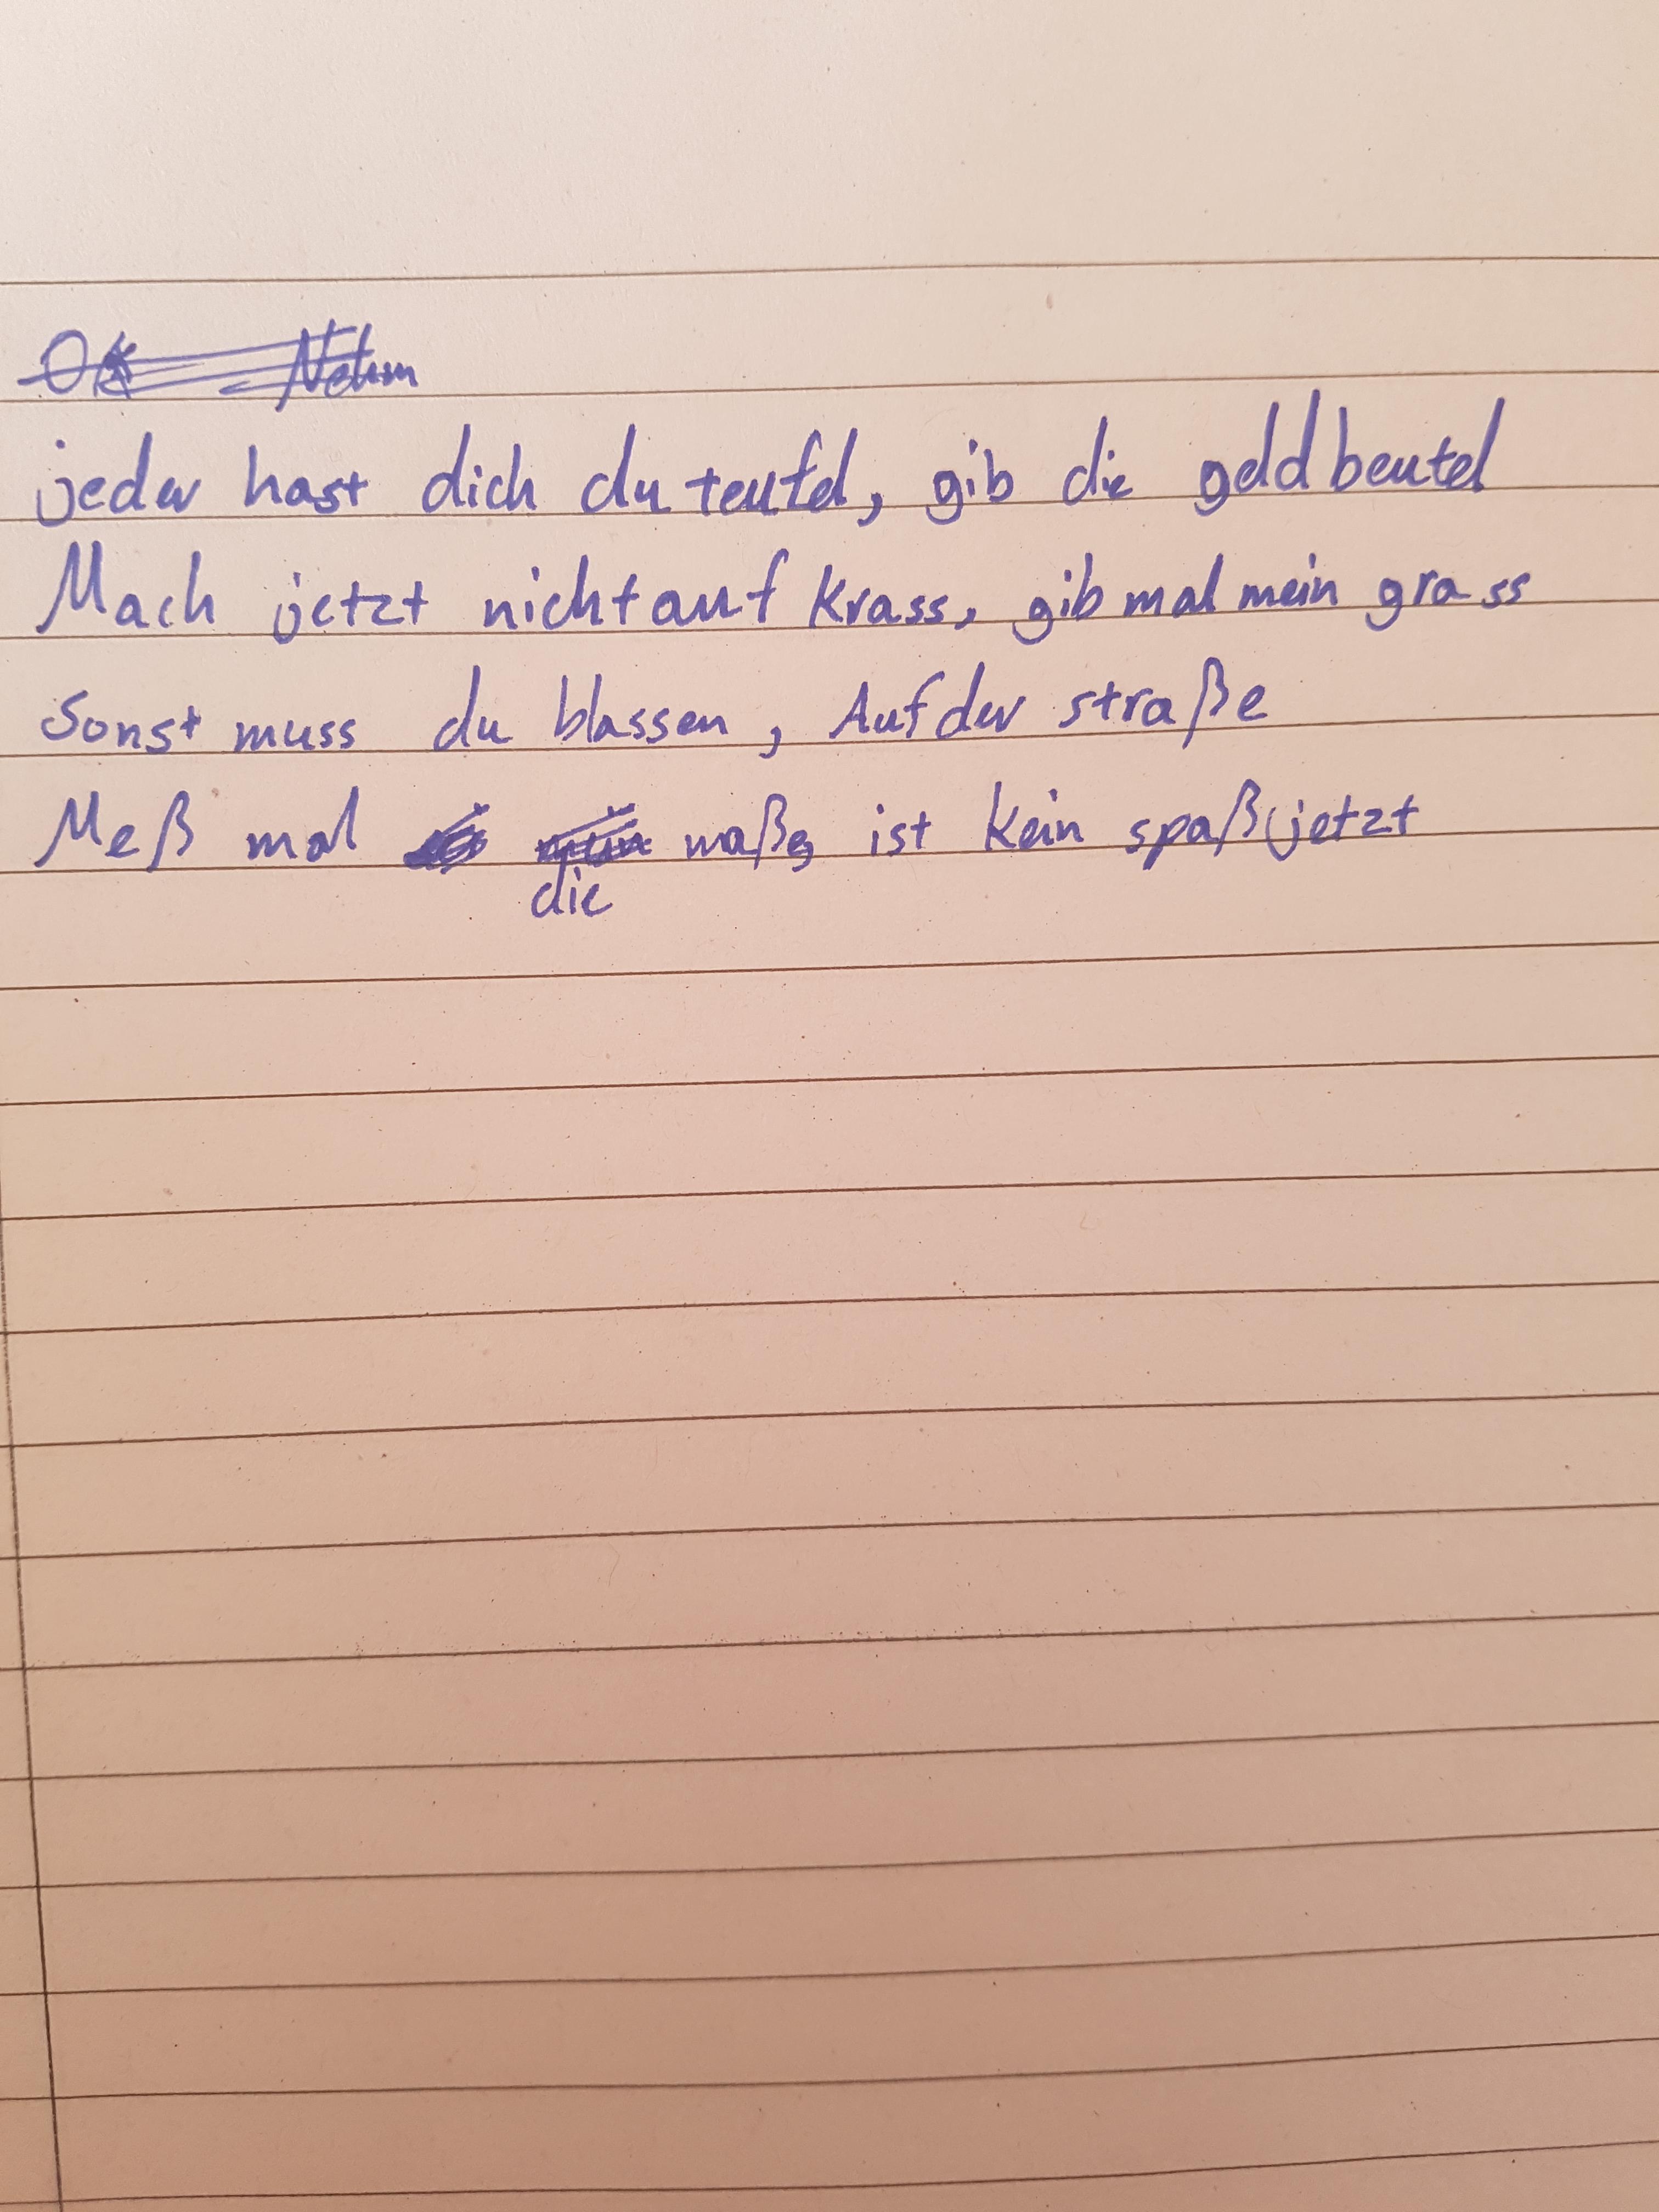 OK Nehm
jeder hast dich du teufel, gib die geldbeutel
Mach jetzt nicht auf krass, gib mal mein grass
Sonst muss du blassen, Auf der straße
Meß mal maße, ist kein spaß jetzt
die